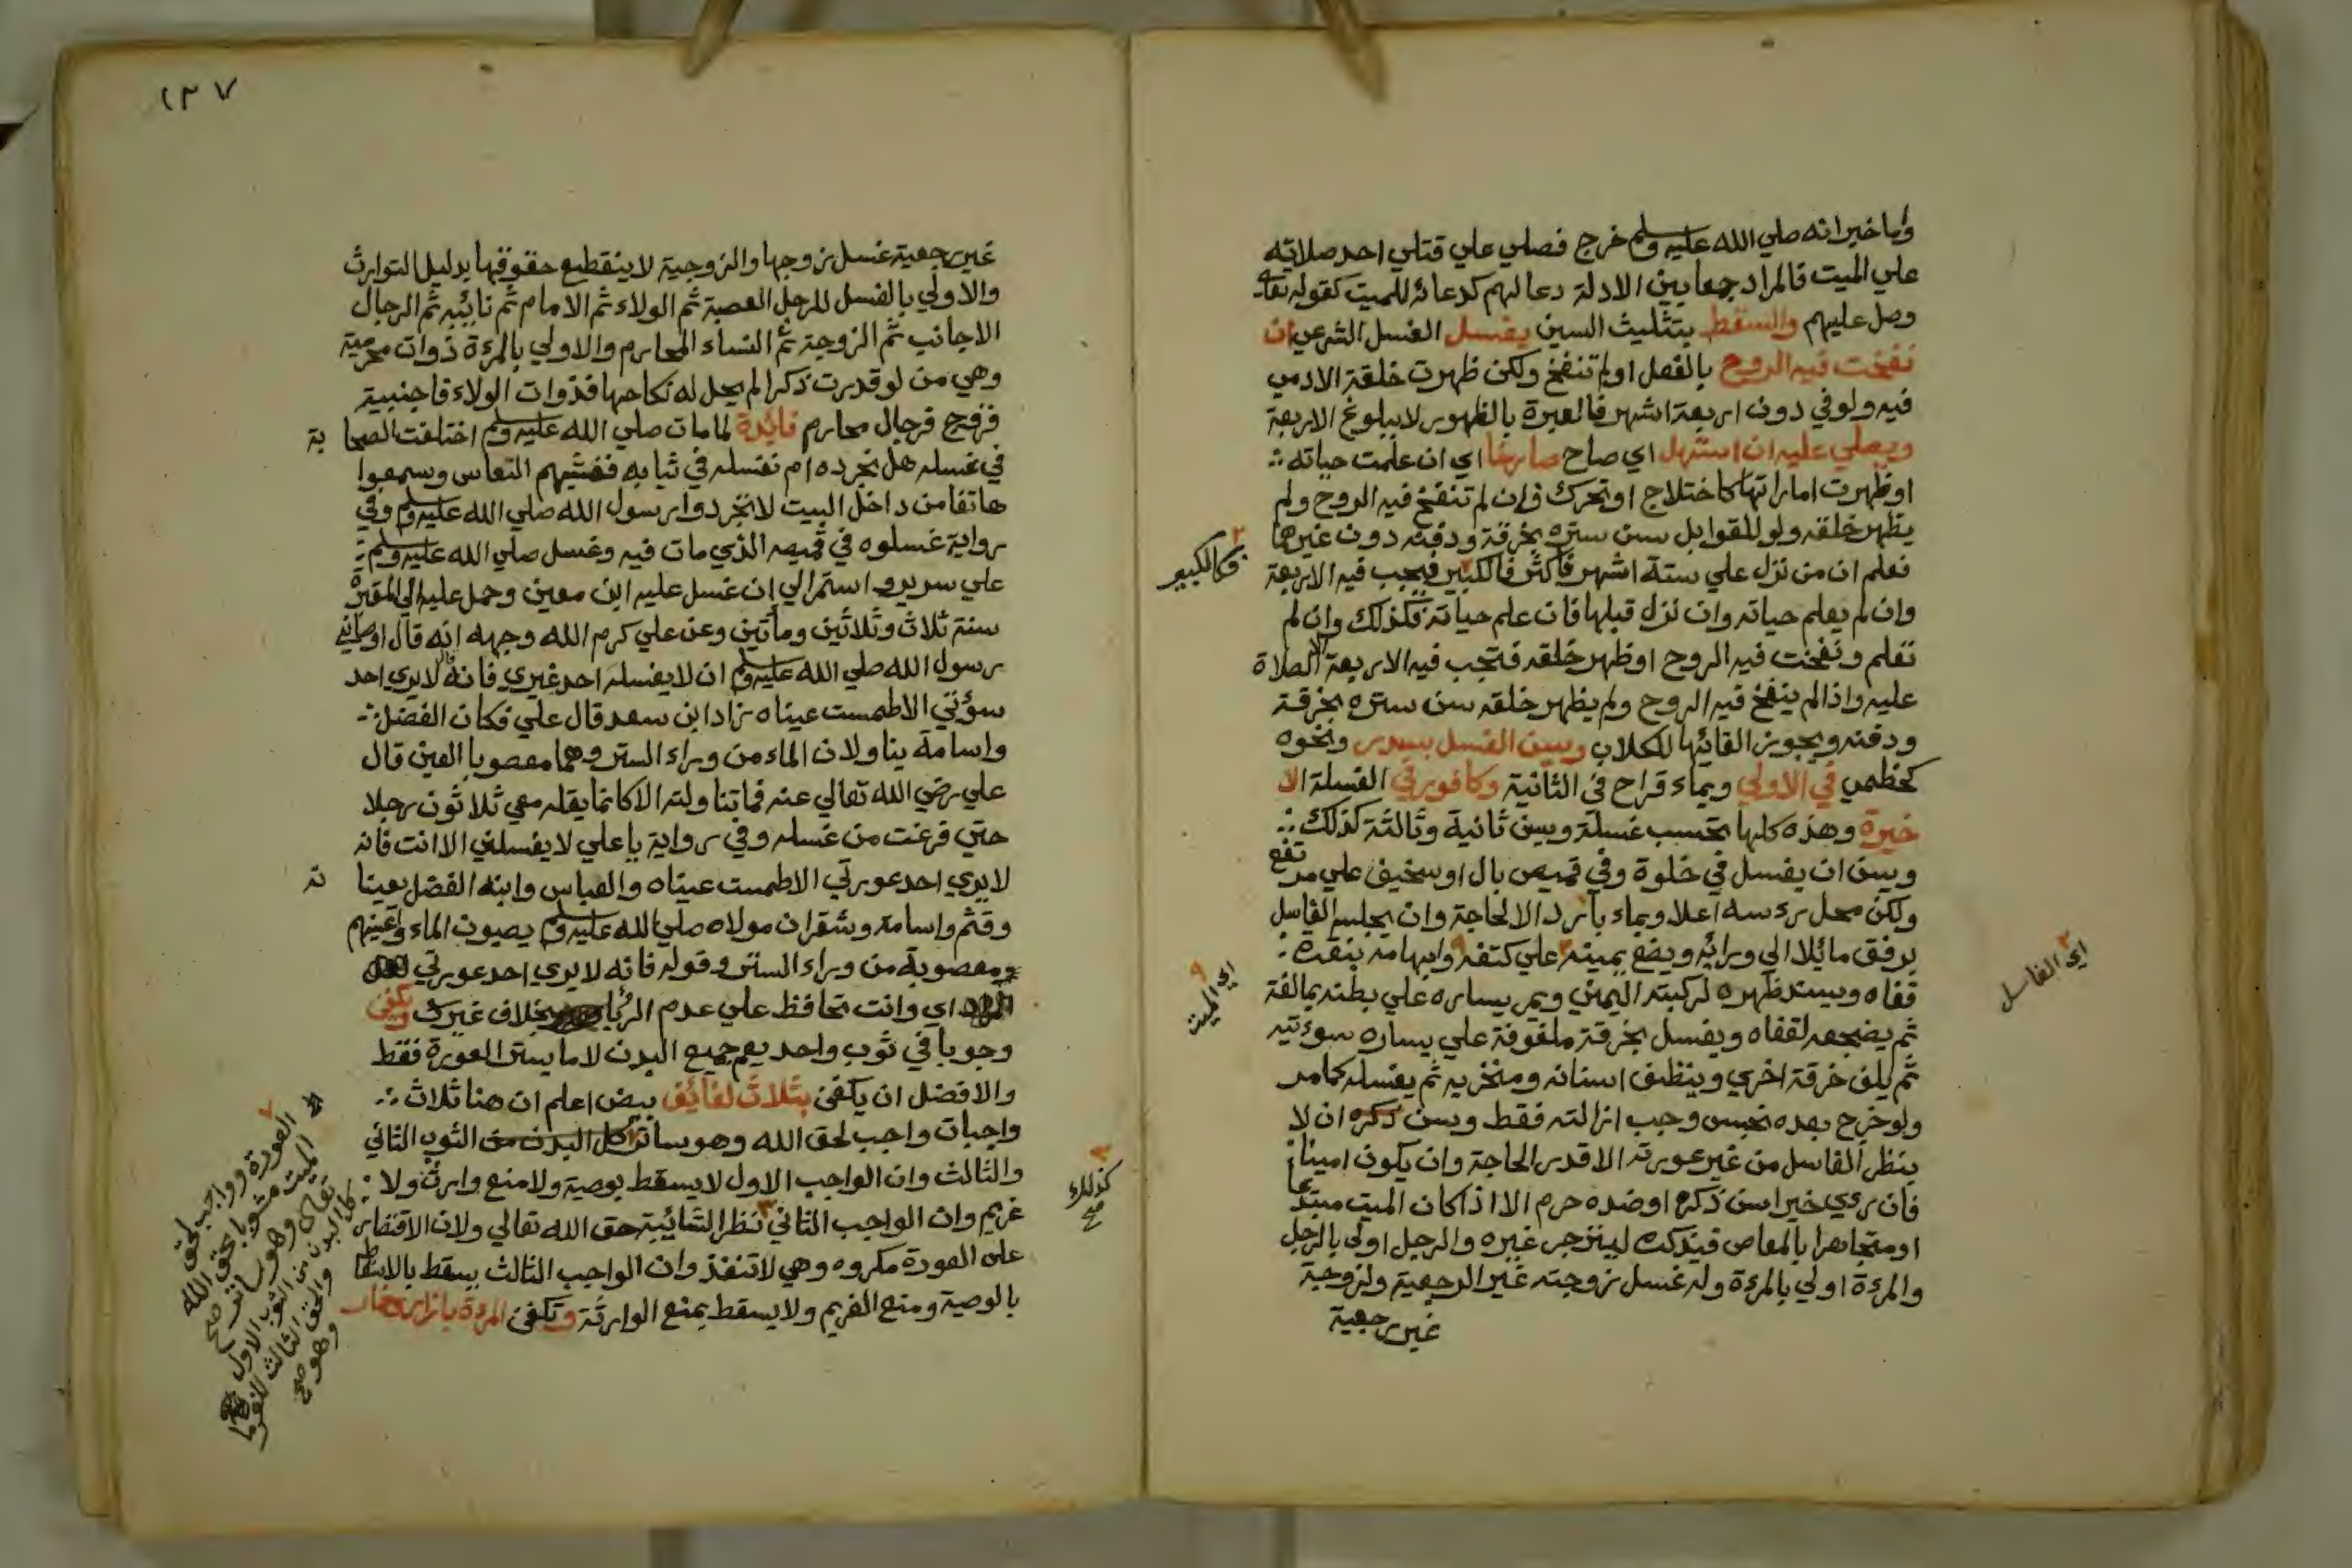 وبا خبر انه صلي الله عليه وسلم خرج فصلي علي قتلي احد صلاته
علي الميت فالمراد جمعا بين الادلة دعا لهم كدعائه للميت كقوله تعالى
وصل عليهم والسقط بتثليث السين يغسل الغسل الشرعي ان
نفخت فيه الروح بالفعل اولم تنفخ ولكن ظهرت خلقة الادمي
فيه ولو في دون اربعة اشهر فالعبرة بالظهور لا ببلوغ الاربعة
ويصلي عليه ان استهل اي صاح صارخا اي ان علمت حياته
اوظهرت اماراتها كاختلاج اوتحرك فان لم تنفخ فيه الروح ولم
يظهر خلقه ولو للقوابل سن ستره بخرقة ودفنه دون غيرها
فعلم ان من نزل علي ستة اشهر فاكثر فالكبير فيجب فيه الاربعة
وان لم يعلم حياته وان نزل قبلها فان علم حياته فكذلك وان لم
تعلم ونفخت فيه الروح اوظهر خلقه فتجب فيه الاربعة الا الصلاة
عليه واذا لم ينفخ فيه الروح ولم يظهر خلقه سن ستره بخرقة
ودفنه ويجوز القائها للكلاب ويسن الغسل بسدر ونحوه
كخطمي في الاولي وبماء قراح في الثانية وكافور في الغسلة الا
خيرة وهذه كلها تحسب غسلة ويسن ثانية وثالثة كذلك
ويسن ان يغسل في خلوة وفي قميص بال اوسخيف علي مرتفع
ولكن محل رءسه اعلا وبماء بارد الا لحاجة وان يجلسه الغاسل
برفق مائلا الي ورائه ويضع يمينه علي كتفه وابهامه بنقرة
قفاه ويسند ظهره لركبته اليمني ويمر يساره علي بطنه بمبالغة
ثم يضجعه لقفاه ويغسل بخرقة ملفوفة علي يساره سوءتيه
ثم يلف خرقة اخري وينظف اسنانه ومنخريه ثم يغسله كما مر
ولو خرج بعده نجس وجب ازالته فقط ويسن ان لا
ينظر الغاسل من غير عورته الا قدر الحاجة وان يكون امينا
فان رءي خيرا سن ذكره اوضده حرم الا اذا كان الميت مبتدعا
اومتجاهرا بالمعاصي فيذكره لينزجر غيره والرجل اولى بالرجل
والمرءة اولي بالمرءة وله غسل زوجته غير الرجعية ولزوجة
غير رجعية
فكالكبير
اي الميت
اي الغاسل
١٣٧
غير رجعية غسل زوجها والزوجية لا ينقطع حقوقها بدليل التوارث
والاولي بالغسل للرجل العصبة ثم الولاء ثم الامام ثم نائبه ثم الرجال
الاجانب ثم الزوجة ثم النساء المحارم والاولي بالمرءة ذوات محرمية
وهي من لو قدرت ذكرا لم يحل له نكاحها فذوات الولاء فاجنبية
فزوج فرجال محارم فائدة لما مات صلي الله عليه وسلم اختلفت الصحابة
في غسله هل نجرده ام نغسله في ثيابه فغشيهم النعاس وسمعوا
هاتفا من داخل البيت لا تجردوا رسول الله صلي الله عليه وسلم وفي
رواية غسلوه في قميصه الذي مات فيه وغسل صلي الله عليه وسلم
علي سرير واستمر الي ان غسل عليه ابن معين وحمل عليه الي المقبرة
سنة ثلاث وثلاثين ومأتين وعن علي كرم الله وجهه انه قال اوصاني
رسول الله صلي الله عليه وسلم ان لا يغسله احد غيري فانه قال لا يري احد
سوءتي الا طمست عيناه زاد ابن سعد قال علي فكان الفضل
واسامة يناولان الماء من وراء الستر وهما معصوبا العين قال
علي رضي الله تعالي عنه فما تناولته الا كانما يقله معي ثلاثون رجلا
حتي فرغت من غسله وفي رواية يا علي لا يغسلني الا انت فانه
لا يري احد عورتي الا طمست عيناه والعباس وابنه الفضل يعينانه
وقثم واسامة وشقران مولاه صلي الله عليه وسلم يصبون الماء واعينهم
معصوبة من وراء الستر وقوله فانه لا يري احد عورتي
اي وانت تحافظ علي عدم بخلاف غيرك وكفن
وجوبا في ثوب واحد يعم جميع البدن لا ما يستر العورة فقط
والافضل ان يكفن بثلاث لفائف بيض اعلم ان هنا ثلاث
واجبات واجب لحق الله وهو ساتر كل البدن من الثوب الثاني
والثالث وان الواجب الاول لا يسقط بوصية ولا منع وارث ولا
غريم وان الواجب الثاني نظرا لشائبة حق الله تعالي ولان الاقتصار
على العورة مكروه وهي لا تنفذ وان الواجب الثالث يسقط بالاسقاط
بالوصية ومنع الغريم ولا يسقط بمنع الوارثة وتكفن المرءة بازار وخمار
كذلك
صح
العورة وواجب لحق
الميت مشوبا بحق الله
تعالى وهو ساتر صح
كل البدن من الثوب الاول
والحق الثالث للغرما
وهو صح